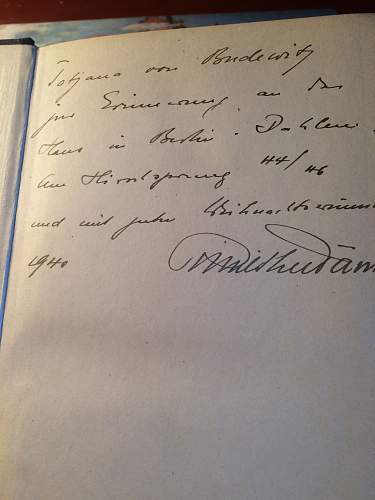 Tatjana von Budewitz
zur Erinnerung an das
Haus in Berlin-Dahlem
Am Hirschsprung 44/46
und mit guten
1940